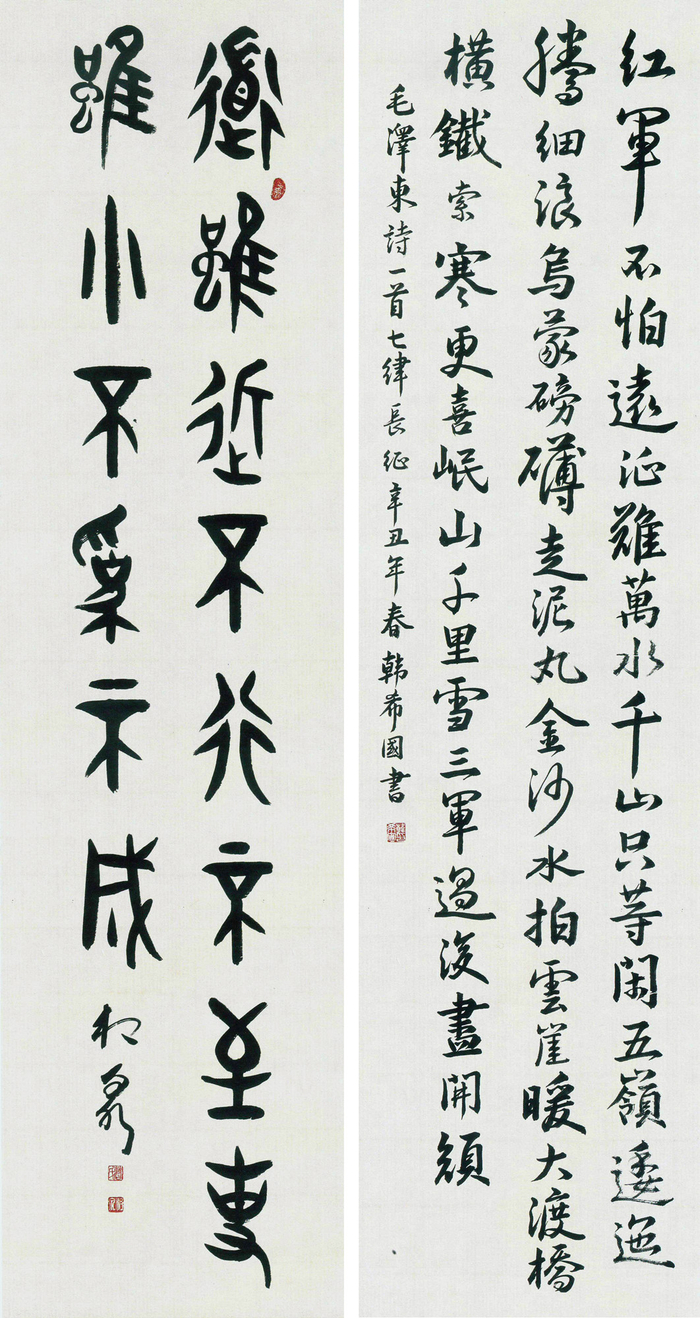 红軍不怕遠征難萬水千山只等閑五嶺逶迤
騰細浪烏蒙磅礴走泥丸金沙水拍雲崖暖大渡橋
橫鐵索寒更喜岷山千里雪三軍過後盡開顏
毛澤東詩一首七律長征辛丑年春韩希國書
道雖近不行不至事
雖小不為不成